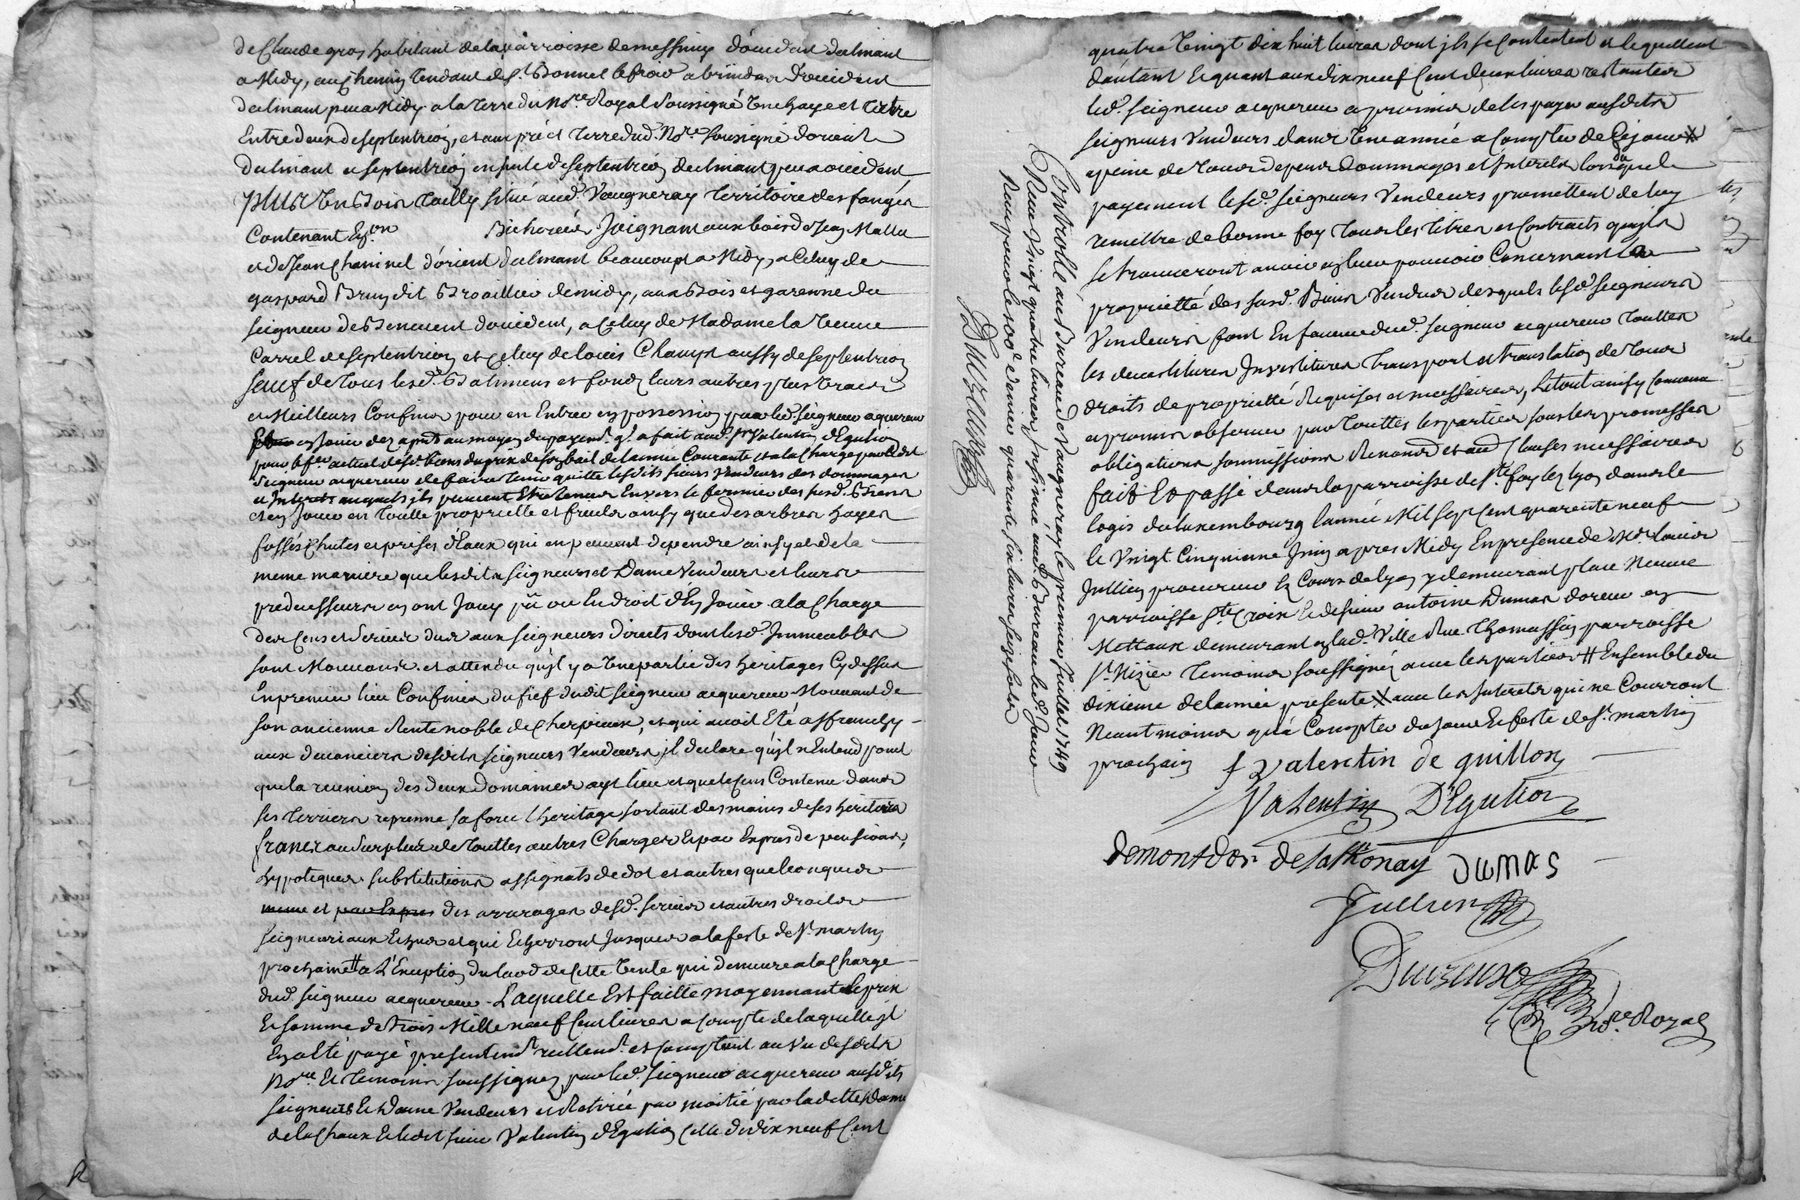 de Claude gros habitant de la parroisse de messimy d'orient declinant
a Midy, au chemin tendant de St. Bonnet le froid a brindas d'occident
declinant peu a Midy a la terre du Nore. Royal soussigné une haye et tertre
Entredeux de septentrion, et aux pré et terre dud. Nore. soussigné d'orient
declinant a septentrion ensuite de septentrion declinant peu a occident
plus un Bois tailly situé aud. Vaugneray territoire des fanges
Contenant Eron Bicherées Joignant aux bois de Jean Mallu
et de Jean Chaninel d'orient declinant beaucoup a Midy, a celuy de
gaspard Bruy dit Broaillie de midy, aux Bois et garenne du
seigneur de Benevent d'occident, a celuy de Madame la veuve
Carrel de septentrion et celuy de Loüis Champs aussy de septentrion
sauf de tous lesd. Batimens et fonds leurs autres plus vrais
et Meilleurs Confins pour en Entrer en possession par led. seigneur acquereur
en Jouir dez apresent au moyen du payement qu'il a fait aud. Sr Valentin d'Egulion
pour be. actuel desd. biens du prix de son bail de l'année Courante et a la charge par led.
seigneur acquereur de faire tenir quitte lesdits sieurs vendeurs des dommages
et Interets auxquels ils peuvent Etre tenus Envers le fermier des susd. Biens
et en Jouir en toutte proprieté et fruits ainsy que des arbres hayes
fossés chutes et prises d'Eaux qui en peuvent dependre ainsy et de la
meme maniere que lesdits seigneurs et Dame vendeurs et leurs
predecesseurs en ont Jouy pû ou Eu droit d'En Jouir a la charge
des Cens et servis dus aux seigneurs directs dont lesd. Immeubles
sont Mouvans et attendu qu'il y a une partie des heritages Cy dessus
En premier lieu Confinés du fief dudit seigneur acquereur Mouvant de
son ancienne Rente noble de Cherpieux, et qui avoit Eté affranchy
aux devanciers desdits seigneurs vendeurs, il declare qu'il n'Entend point
que la reunion des deux domaines ayt lieu et que le cens Contenu dans
ses terriers reprenne sa force l'heritage sortant des mains de ses heritiers
francs au surplus de touttes autres Charges Et par Exprès de pensions,
hypoteques substitutions assignats de dot et autres quelconques
meme et par Expres des arrerages desd. servis et autres droits
seigneuriaux Echus et qui Echerront Jusques a la feste de St. martin
prochaine # a L'Exception du laod de cette vente qui demeure a la Charge
dud. seigneur acquereur. Laquelle Est faitte moyennant Le prix
Et somme de trois Mille neuf Cent livres a compte de laquelle il
En a Eté payé presentement reellement et comptant au vu desdits
Nore. Et temoins soussignez par led. seigneur acquereur ausdits
seigneurs Et Dame vendeurs et Retirée par moitié par laditte Dame
de la Chaux Et ledit sieur Valentin d'Egulion celle de dix neuf Cent
quatre vingt dix huit livres dont ils se contentent et le quittent
d'autant Et quant aux dix neuf Cent deux livres restantes
led. seigneur acquereur a promis de les payer ausdits
seigneurs vendeurs dans une année a Compter de Ce jour X
a peine de tous depens dommages et Interets lors du quel
payement lesd. seigneurs vendeurs promettent de luy
remettre de bonne foy tous les titres et contracts qu'ils
se trouveront avoir en leur pouvoir Concernant la
proprieté des susd. Biens vendus desquels lesd. seigneurs
vendeurs font En faveur dud. seigneur acquereur touttes
les devestitures Investitures transport et translation de tous
droits de proprieté Requises et necessaires, Le tout ainsy convenu
a promis observer par touttes les parties sous les promesses
obligations soumissions Renonciations et clauses necessaires
fait Et passé dans la parroisse de Ste. foy les Lyon dans le
logis du luxembourg l'année Mil sept Cent quarente neuf
le vingt Cinquieme Juin apres Midy En presence de Me. Louis
Jullien procureur Ez Cours de Lyon y demeurant place Neuve
parroisse Ste. Croix Et de sieur antoine Dumas doreur en
Mettaux demeurant en lad. Ville Rue Thomassin parroisse
St. Nizier temoins soussignez avec les parties # Ensemble du
dixieme de l'année presente X avec les Interets qui ne Courront
Neantmoins qu'à Compter du Jour Et feste de St. martin
prochain f valentin de guillon
Valentin D'Egulion
demontdor de sathonay Dumas
Jullien
Duvernay
Nore. Royal
Controllé au Bureau de vaugneray le premier Juillet 1749
Reçu vingt quatre livres